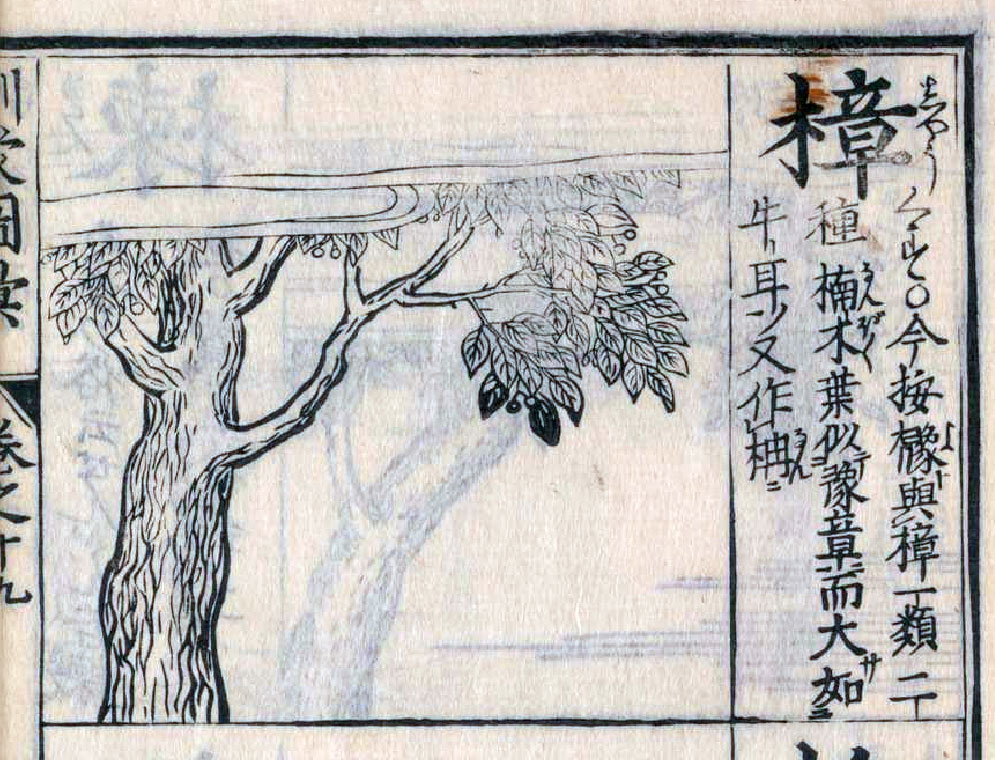 樟 しやう
くす○今按櫲與樟一類二
種楠木葉似豫章而大如
牛耳又作柟
訓蒙圖彙
卷之十九